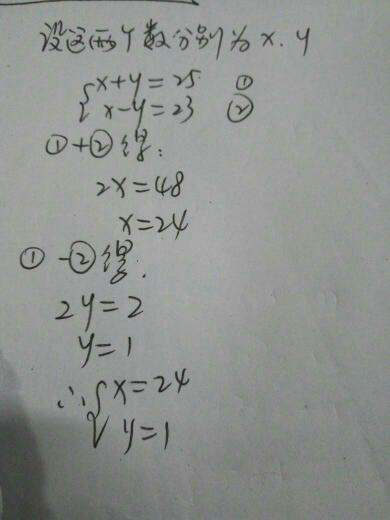 设这两个数分别为x.y
{x+y=25 ①
x-y=23 ②
①+②得:
2x=48
x=24
①-②得:
2y=2
y=1
∴{x=24
y=1